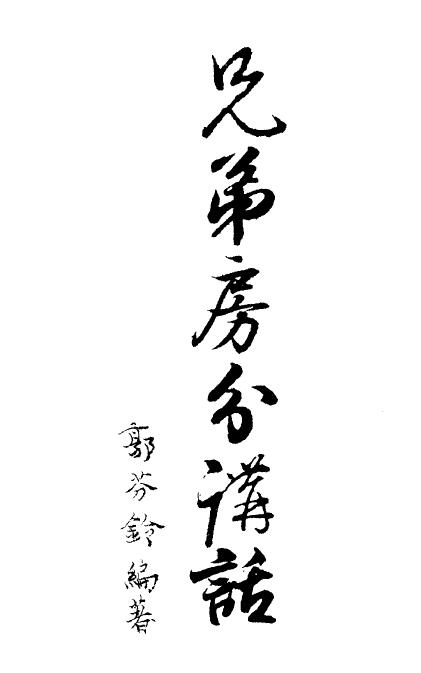 兄弟房分講話
郭芬鈴編著